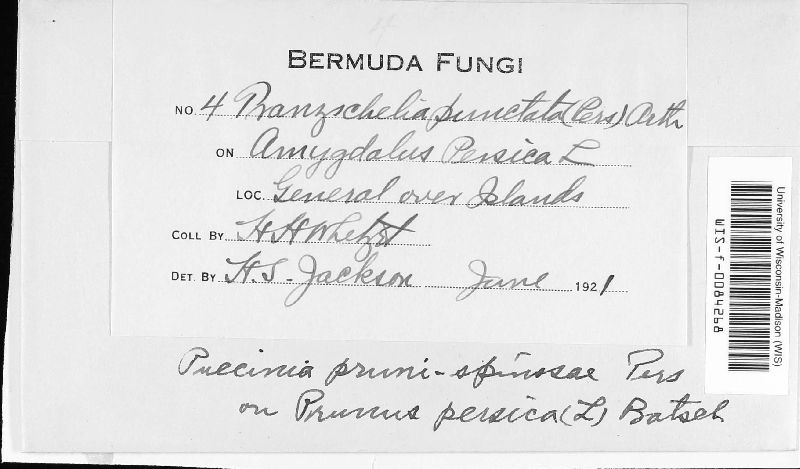 BERMUDA FUNGI
NO. 4 Tranzschelia punctata (Pers) Arth
ON Amygdalus Persica L
LOC. General over Islands
COLL BY H H Whetzel
DET. BY H.S. Jackson June 1921
Puccinia pruni-spinosae Pers
on Prunus persica (L) Batsch
University of Wisconsin-Madison (WIS)
WIS-f-0084268